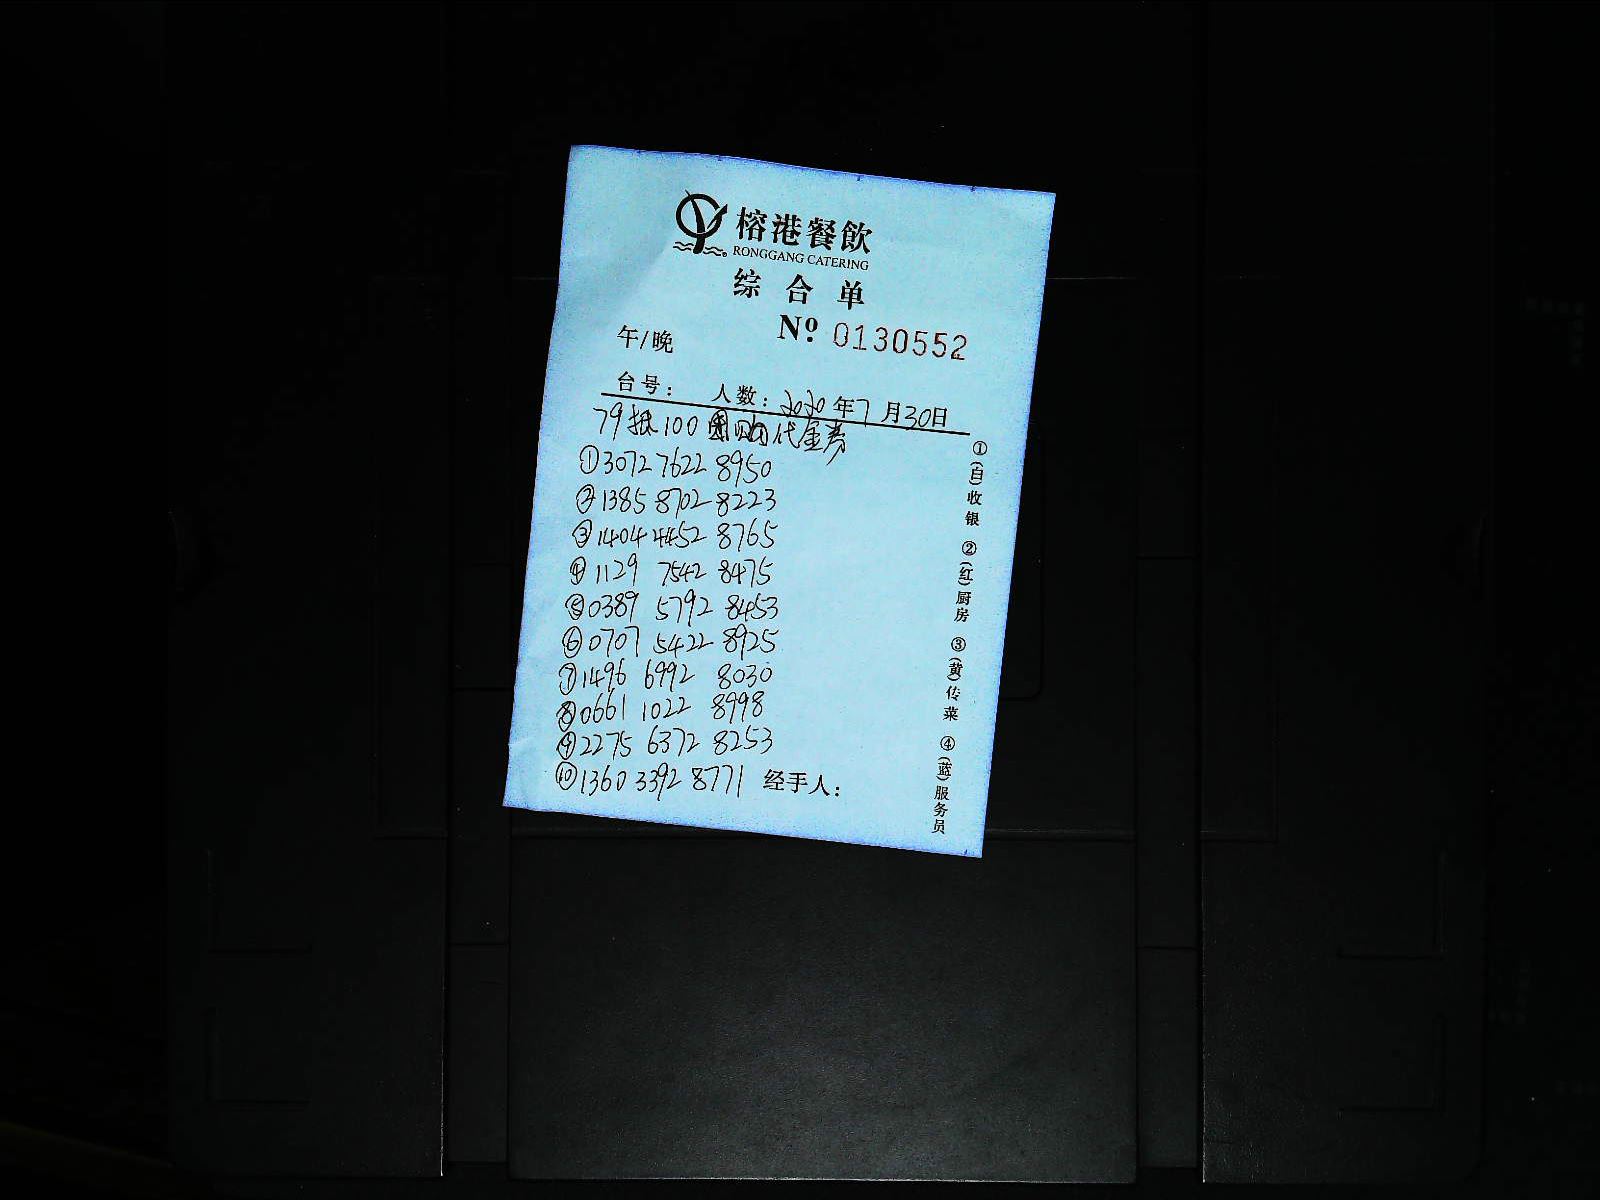 榕港餐飲
RONGGANG CATERING
综合单
Nº 0130552
午/晚
台号: 人数: 2020年7月30日
79抵100团购代金券
①3072 7622 8950
②1385 8702 8223
③1404 4452 8765
④1129 7542 8475
⑤0389 5792 8453
⑥0707 5422 8925
⑦1496 6992 8030
⑧0661 1022 8998
⑨2275 6372 8253
⑩1360 3392 8771 经手人:
①(白)收银 ②(红)厨房 ③(黄)传菜 ④(蓝)服务员